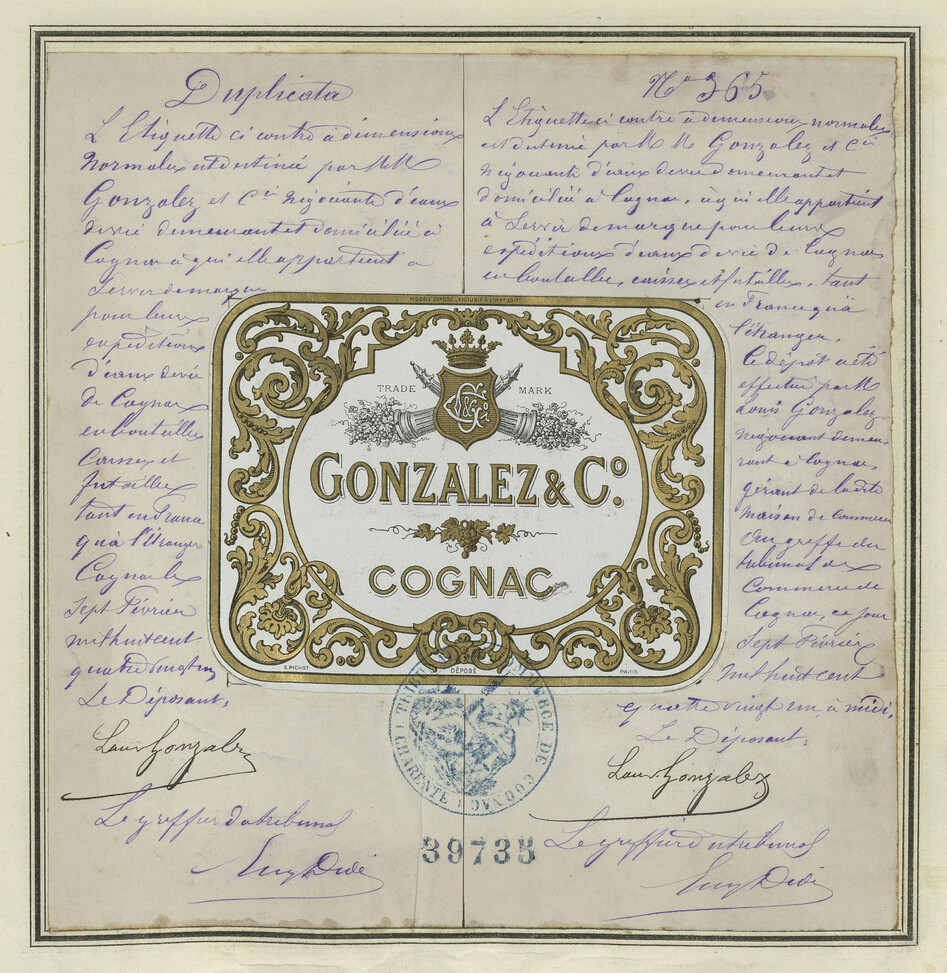 Duplicata
L'Etiquette ci contre à dimensions
normales est destinée par MM
Gonzalez et Cie négociants d'eaux
de vie demeurant et domiciliés à
Cognac à qui elle appartient à
Servir de marque
pour leurs
expéditions
d'eaux de vie
de Cognac
en bouteilles
caisses et
futailles
tant en France
qu'à l'étranger
Cognac le
Sept Février
mil huit cent
quatre vingt un
Le Déposant,
Louis Gonzalez
Le greffier du tribunal
No 365
L'Etiquette ci contre à dimensions normales
est destinée par M M Gonzalez et Cie
négociants d'eaux de vie demeurant et
domiciliés à Cognac, à qui elle appartient
à Servir de marque pour leurs
expéditions d'eaux de vie de Cognac
en bouteilles, caisses et futailles, tant
en France qu'à
l'étranger.
Ce dépôt a été
effectué par M
Louis Gonzalez
négociant demeu-
rant à Cognac,
gérant de ladite
maison de commerce
au greffe du
tribunal de
Commerce de
Cognac, ce jour
Sept Février
mil huit cent
quatre vingt un, à midi.
Le Déposant,
Louis Gonzalez
Le greffier du tribunal
TRADE MARK
G & Co
GONZALEZ & Co.
COGNAC
E. PICHOT
DÉPOSÉ
PARIS
TRIBUNAL DE COMMERCE DE COGNAC
CHARENTE
39735